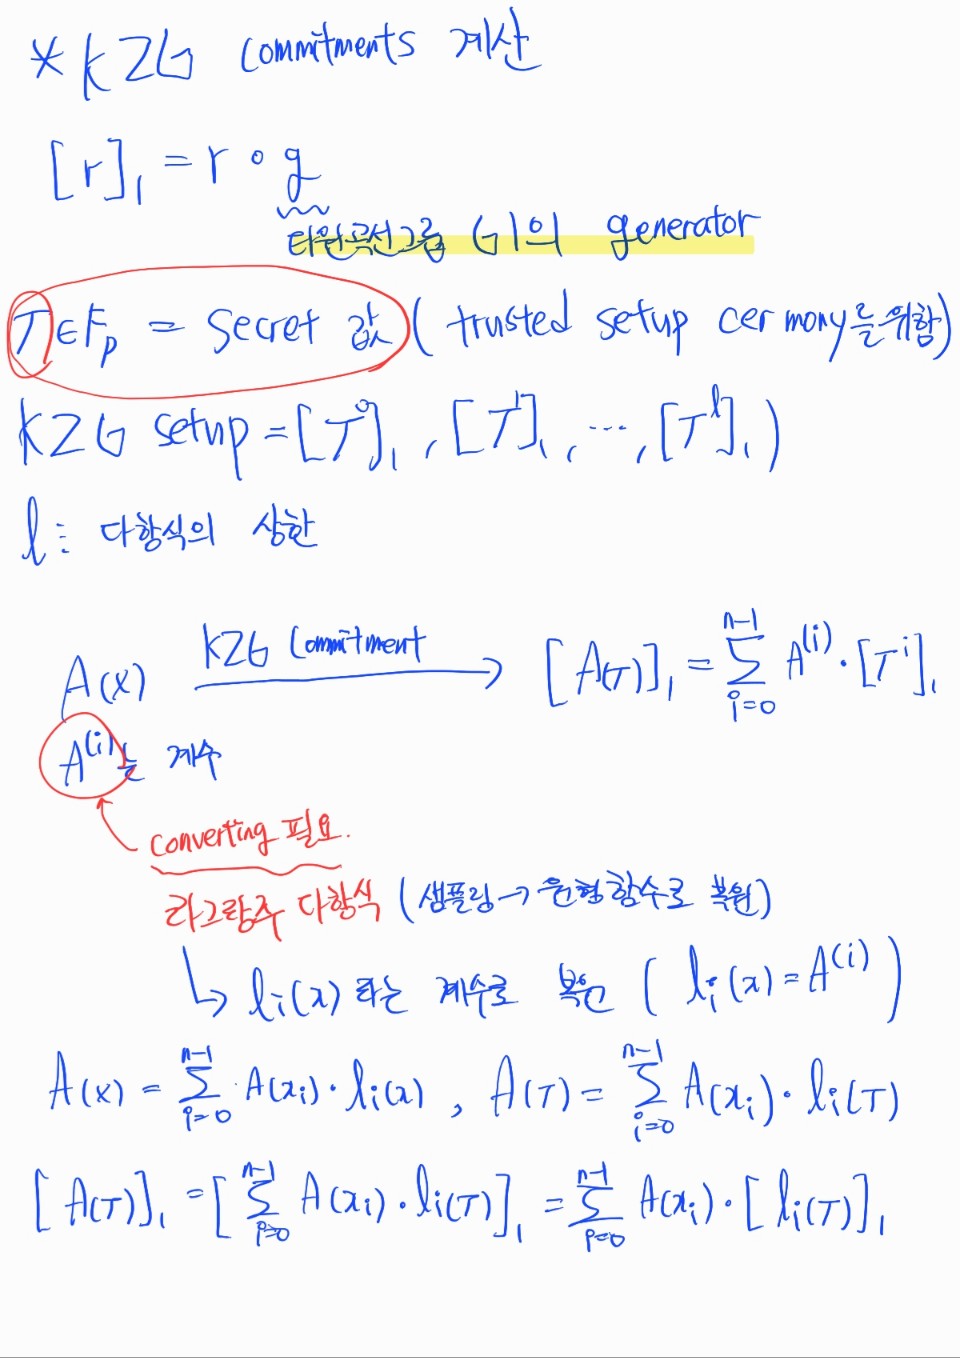 * KZG commitments 계산
[r]₁ = r ∘ g
타원곡선그룹 G1의 generator
T ∈ Fₚ = Secret 값 ( trusted setup cermony를 위함)
KZG setup = [T⁰]₁ , [T¹]₁ , ... , [Tˡ]₁ )
l : 다항식의 상한
A(x) KZG Commitment → [A(T)]₁ = ∑_{i=0}^{n-1} A⁽ⁱ⁾ · [Tⁱ]₁
A⁽ⁱ⁾는 계수
converting 필요.
라그랑주 다항식 (샘플링 → 원형함수로 복원)
↳ lᵢ(x) 라는 계수로 복원 ( lᵢ(x) = A⁽ⁱ⁾ )
A(x) = ∑_{i=0}^{n-1} A(xᵢ) · lᵢ(x) , A(T) = ∑_{i=0}^{n-1} A(xᵢ) · lᵢ(T)
[A(T)]₁ = [∑_{i=0}^{n-1} A(xᵢ) · lᵢ(T)]₁ = ∑_{i=0}^{n-1} A(xᵢ) · [lᵢ(T)]₁